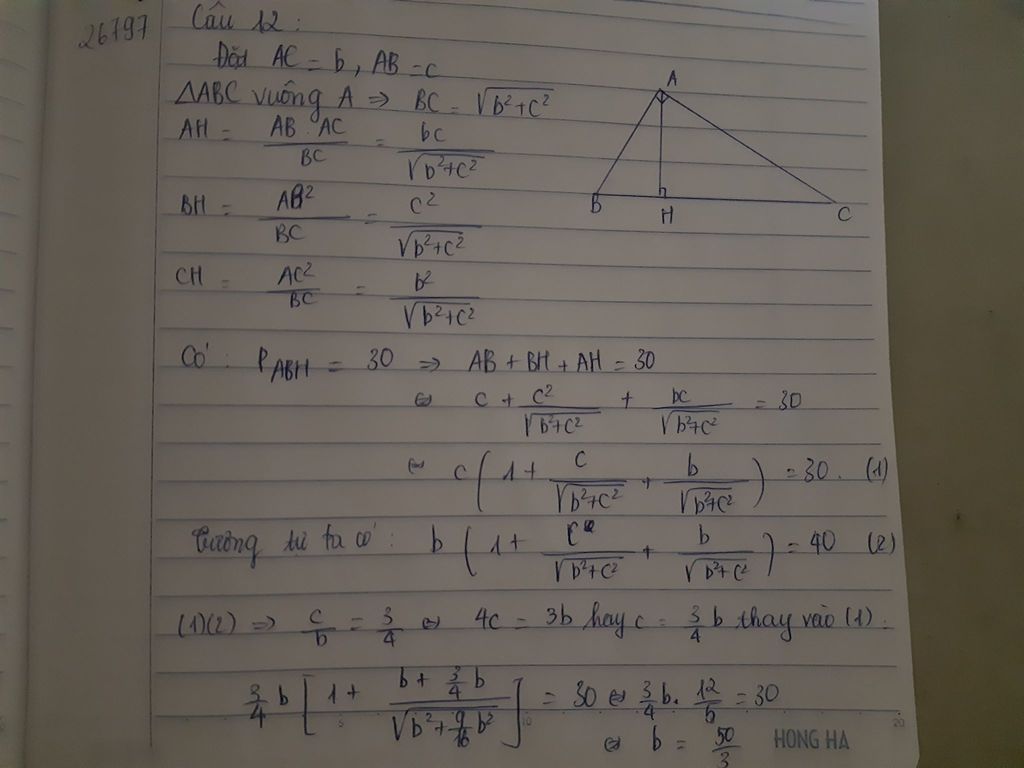 26797
Câu 12:
Đặt AC = b, AB = c
ΔABC vuông A ⇒ BC = √(b²+c²)
AH = AB.AC/BC = bc/√(b²+c²)
BH = AB²/BC = c²/√(b²+c²)
CH = AC²/BC = b²/√(b²+c²)
A
B H C
Có: P_ABH = 30 ⇒ AB + BH + AH = 30
⇔ c + c²/√(b²+c²) + bc/√(b²+c²) = 30
⇔ c(1 + c/√(b²+c²) + b/√(b²+c²)) = 30. (1)
Tương tự ta có: b(1 + c/√(b²+c²) + b/√(b²+c²)) = 40 (2)
(1)(2) ⇒ c/b = 3/4 ⇔ 4c = 3b hay c = 3/4 b thay vào (1).
3/4 b [1 + (b + 3/4 b)/√(b² + 9/16 b²)] = 30 ⇔ 3/4 b. 12/5 = 30
⇔ b = 50/3
HONG HA
5 10 20